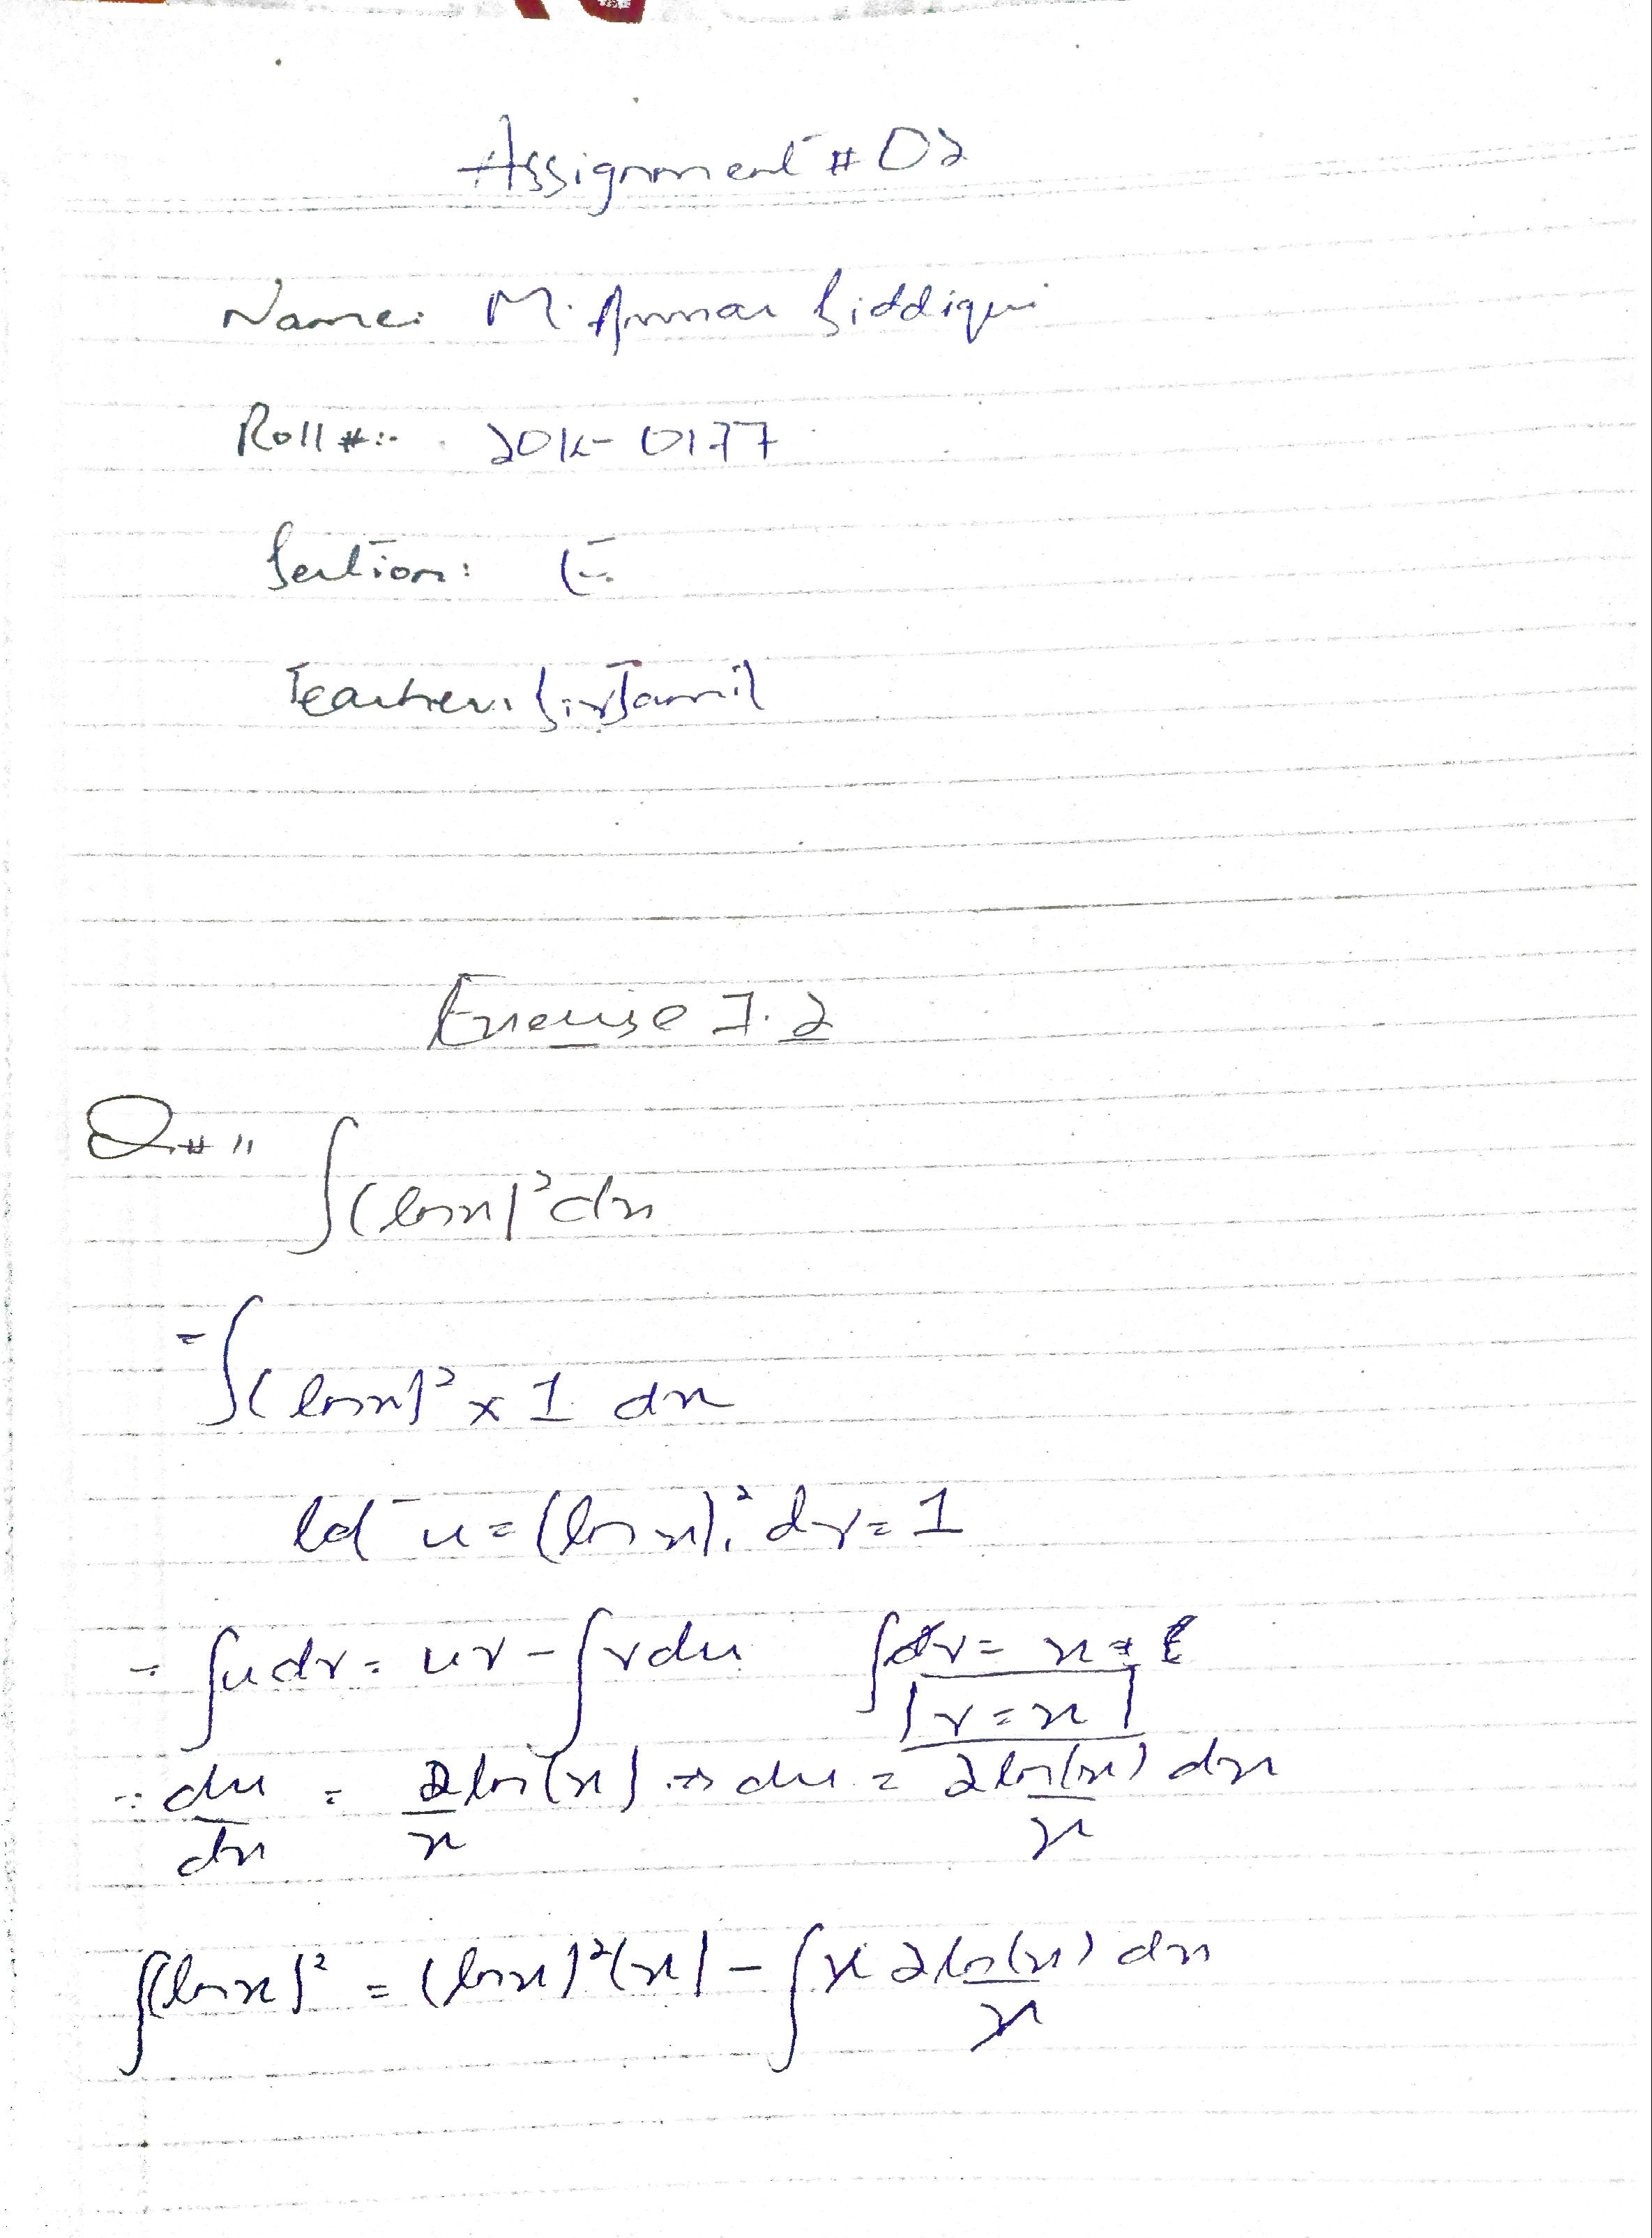 Assignment # 02
Name: M. Ammar Siddiqui
Roll #:- 20K-0177
Section: E
Teacher: Sir Jamil
Exercise 7.2
Q# 11
∫(ln x)² dx
= ∫(ln x)² x 1 dx
let u = (ln x)², dv = 1
= ∫u dv = uv - ∫v du ∫dv = x +
v = x
∴ du/dx = 2/x ln(x) → du = 2 ln(x)/x dx
∫(ln x)² = (ln x)²(x) - ∫x 2 ln(x)/x dx